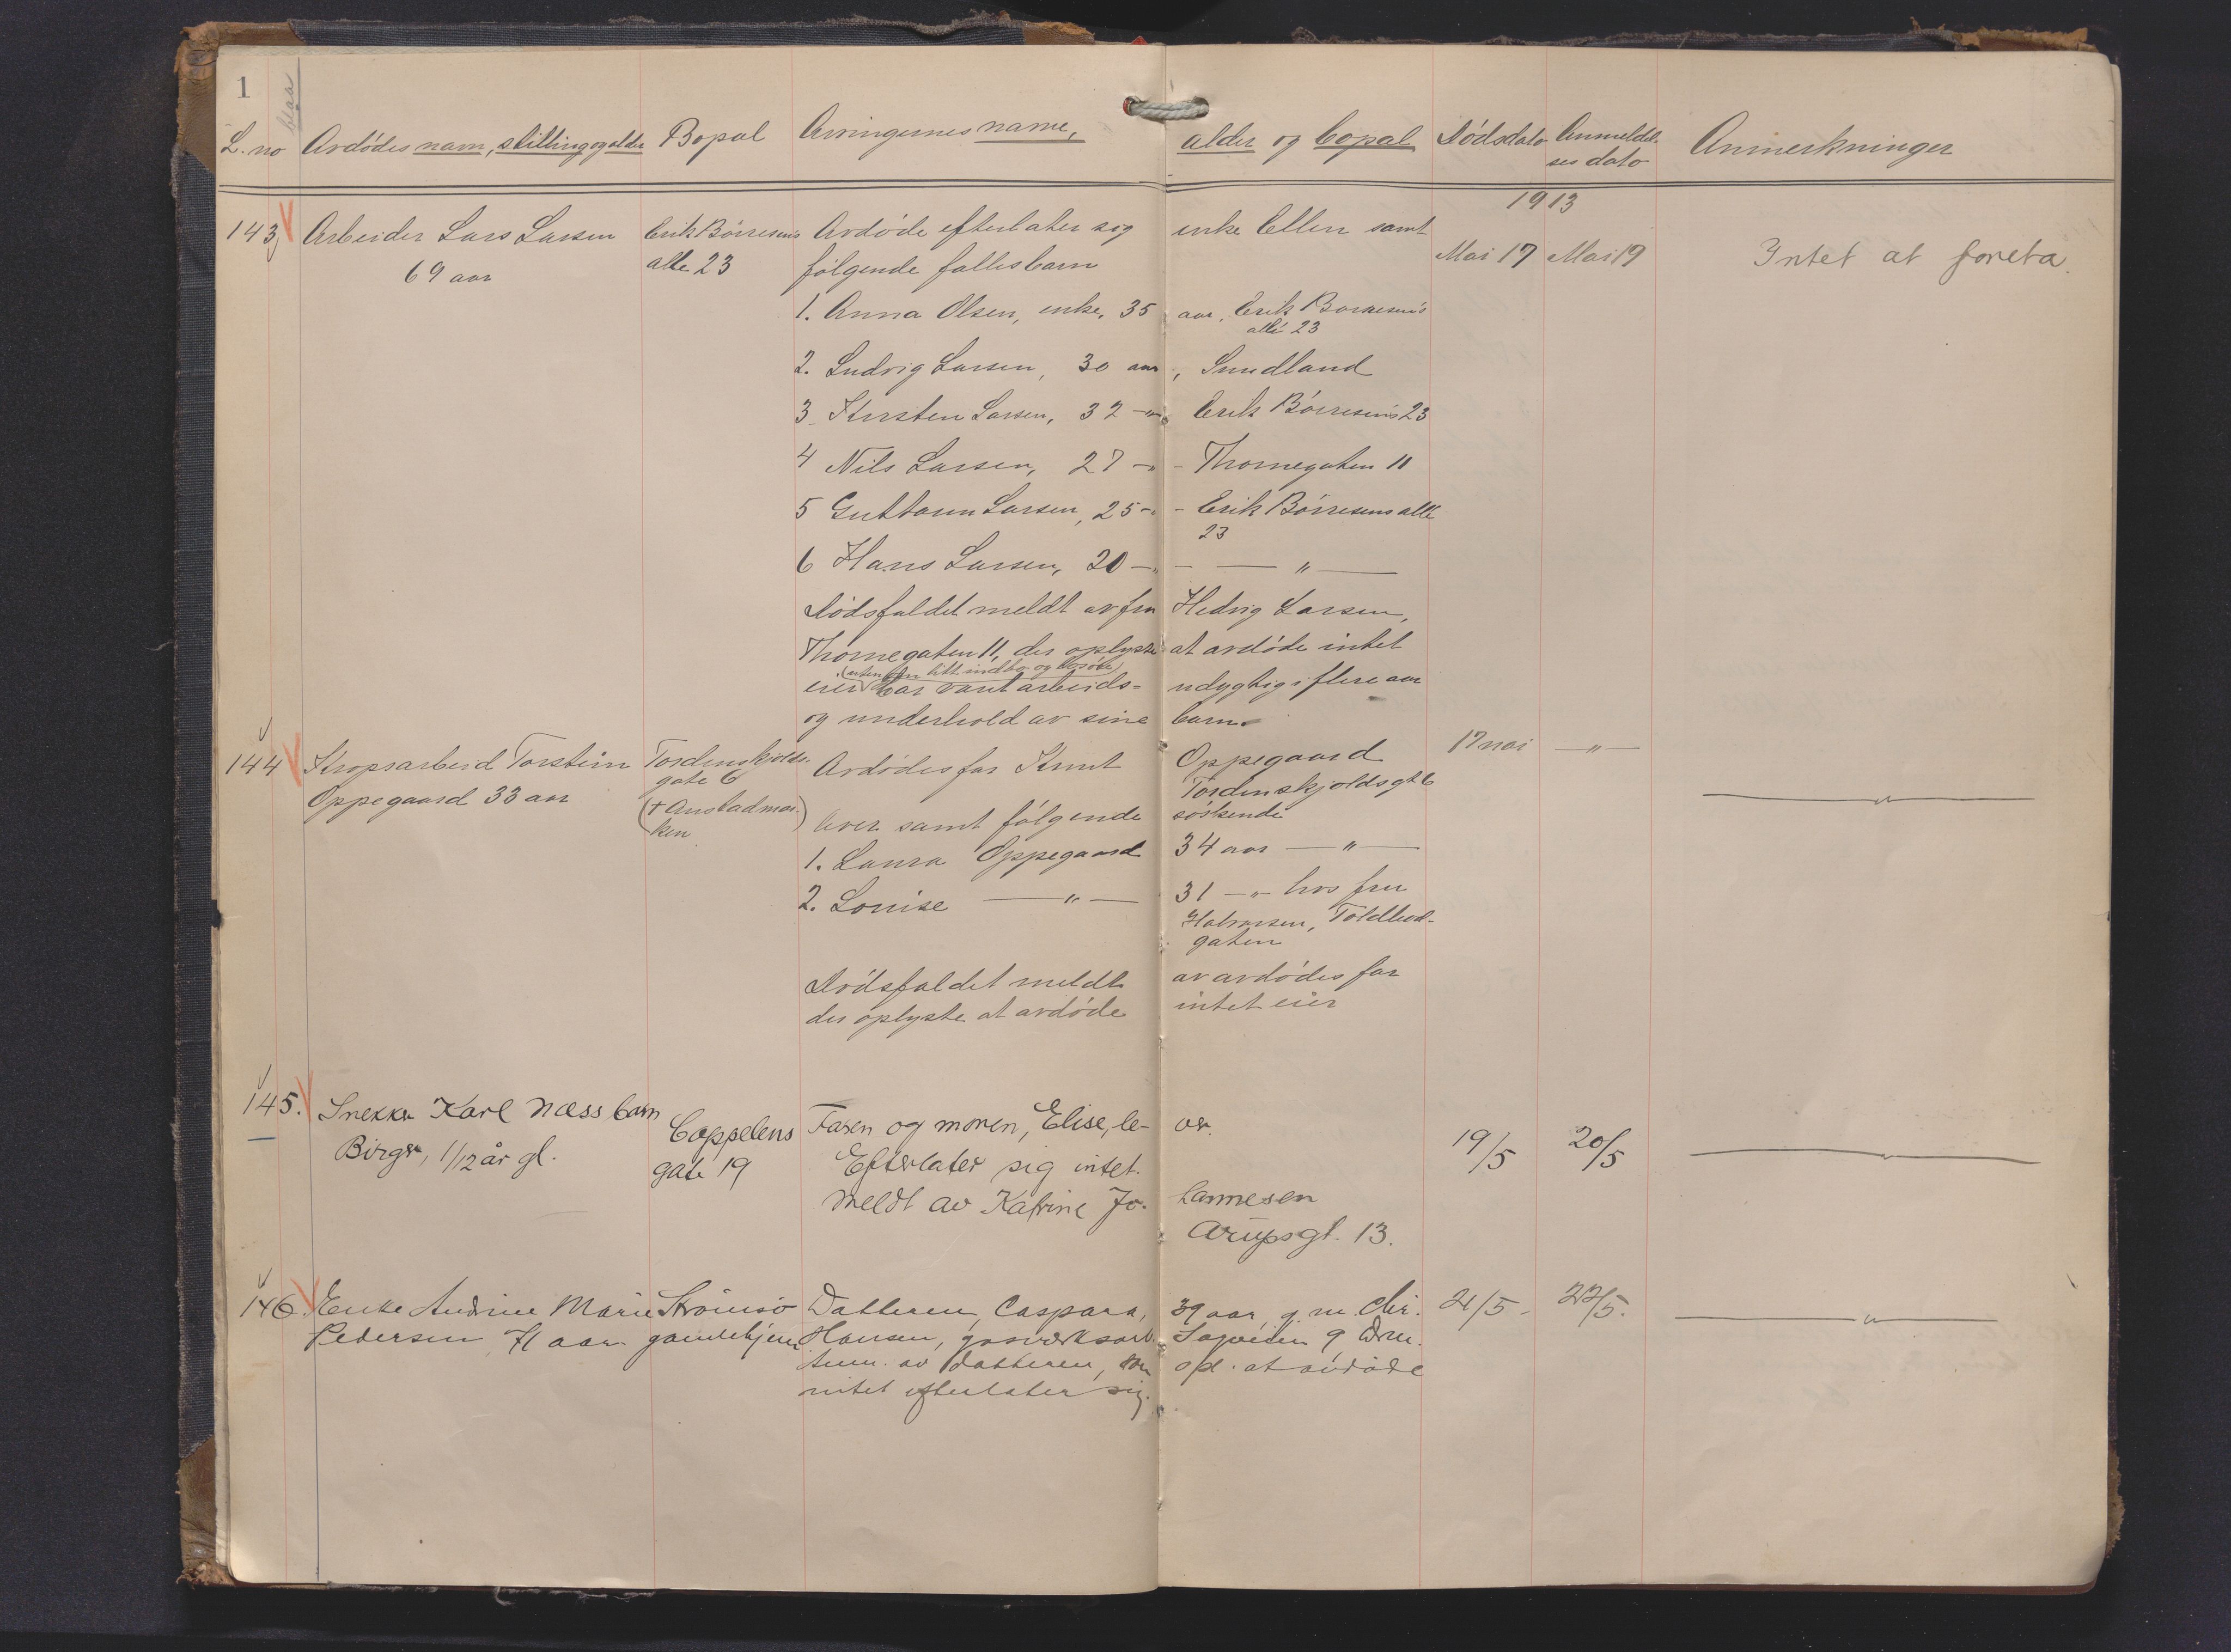 1
blaa
L. no Avdødes navn, stilling og alder Bopæl Arvingernes navne, alder og bopæl Dødsdato Anmeldel-
ses dato Anmerkninger
1913
143 Arbeider Lars Larsen Erik Børresens Avdøde efterlater sig enke Ellen samt Mai 17 Mai 19 Intet at foreta.
69 aar alle 23 følgende fællesbarn
1. Anna Olsen, enke, 35 aar, Erik Børresens
allé 23
2. Ludvig Larsen, 30 aar, Sundland
3. Kirsten Larsen, 32 -"- Erik Børresens 23
4 Nils Larsen, 27 -"- Thornegaten 11
5 Guttorm Larsen, 25 -"- Erik Børresens alle
23
6 Hans Larsen, 20 -"- — " —
Dødsfaldet meldt av fru Hedvig Larsen,
Thornegaten 11, der oplyste at avdøde intet
(uten litt indbo og løsøre)
eier har vært arbeids- udygtig i flere aar
og underhold av sine barn.
144 Kropsarbeid Torstein Tordenskjolds- Avdødes far Knut Oppegaard 17 mai — " —
Oppegaard 33 aar gate 6 Tordenskjoldsgt 6 — " —
(+ Austadmar-
ken) lever samt følgende søskende
1. Laura Oppegaard 34 aar — " —
2. Louise — " — 31 -"- hos fru
Halvorsen, Toldbod-
gaten
Dødsfaldet meldt av avdødes far
der oplyste at avdøde intet eier
145. Snekker Karl Næss barn Cappelens Faren og moren, Elise, le- ver. 19/5 20/5 — " —
Birger, 1/12 år gl. gate 19 Efterlater sig intet.
Meldt av Katrine Jo- hannesen
Arupsgt. 13.
146. Enke Andrine Marie Strømsø Datteren, Caspara, 39 aar, g. m. Chr. 21/5 - 22/5. — " —
Pedersen 71 aar gamlehjem Hansen, gasverksarb.
Anm. av datteren, som opl. at avdøde
intet efterlater sig.